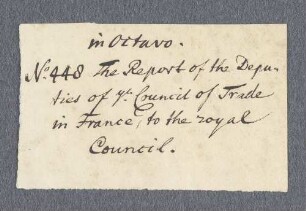 in Octavo.
No. 448 The Report of the Depu-
ties of ye. Council of Trade
in France, to the royal
Council.